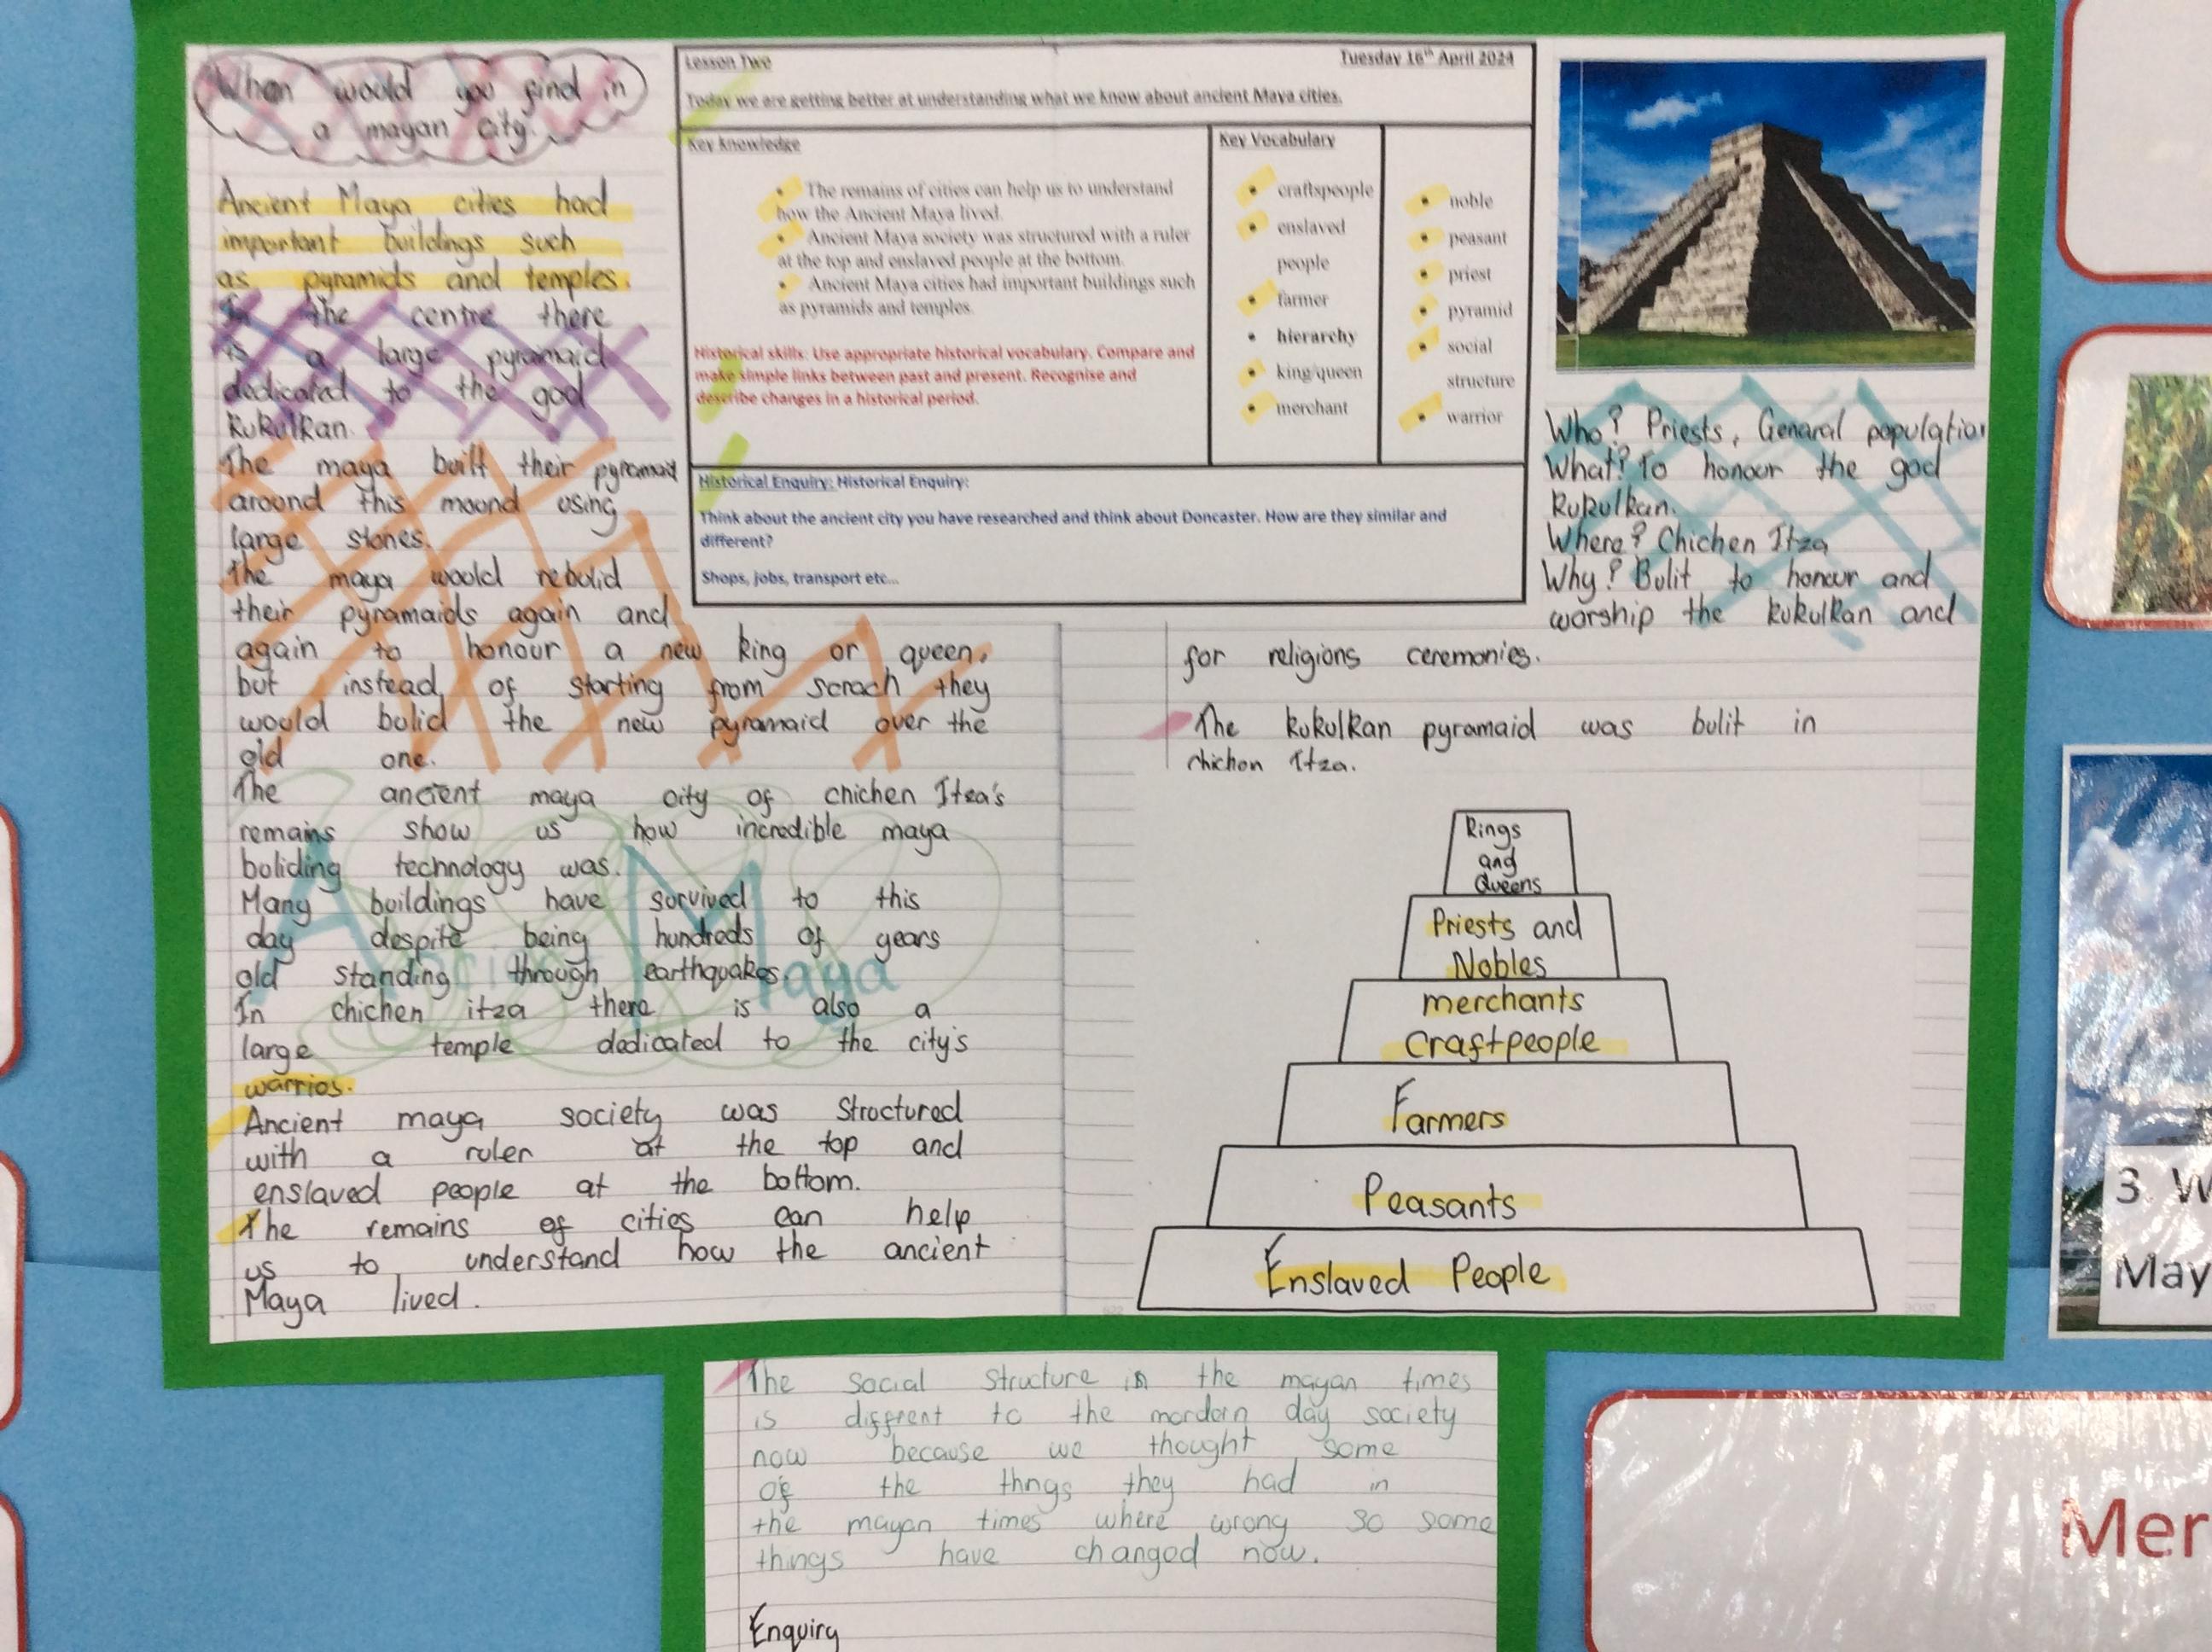 When would you find in
a mayan city.
Ancient Maya cities had
important buildings such
as pyramids and temples.
In the centre there
is a large pyramaid
dedicated to the god
Kukulkan.
The maya built their pyramaid
around this mound using
large stones.
The maya would rebulid
their pyramaids again and
again to honour a new king or queen,
but instead of starting from scrach they
would bulid the new pyramaid over the
old one.
The ancient maya city of chichen Itza's
remains show us how incredible maya
boliding technology was.
Many buildings have survived to this
day despite being hundreds of years
old standing through earthquakes.
In chichen itza there is also a
large temple dedicated to the city's
warrios.
Ancient maya society was structured
with a ruler at the top and
enslaved people at the bottom.
The remains of cities can help
us to understand how the ancient
Maya lived.
Ancient Maya
Lesson Two
Tuesday 16th April 2024
Today we are getting better at understanding what we know about ancient Maya cities.
Key knowledge
• The remains of cities can help us to understand
how the Ancient Maya lived.
• Ancient Maya society was structured with a ruler
at the top and enslaved people at the bottom.
• Ancient Maya cities had important buildings such
as pyramids and temples.
Historical skills: Use appropriate historical vocabulary. Compare and
make simple links between past and present. Recognise and
describe changes in a historical period.
Key Vocabulary
• craftspeople
• enslaved
people
• farmer
• hierarchy
• king/queen
• merchant
• noble
• peasant
• priest
• pyramid
• social
structure
• warrior
Historical Enquiry: Historical Enquiry:
Think about the ancient city you have researched and think about Doncaster. How are they similar and
different?
Shops, jobs, transport etc...
Who? Priests, Genaral population
What? To honour the god
Kukulkan.
Where? Chichen Itza
Why? Bulit to honour and
worship the kukulkan and
for religions ceremonies.
The kukulkan pyramaid was bulit in
chichen Itza.
Kings
and
Queens
Priests and
Nobles
merchants
Craftpeople
Farmers
Peasants
Enslaved People
The social structure in the mayan times
is diffrent to the mordern day society
now because we thought some
of the thngs they had in
the mayan times where wrong so some
things have changed now.
Enquiry
3. W
May
Mer